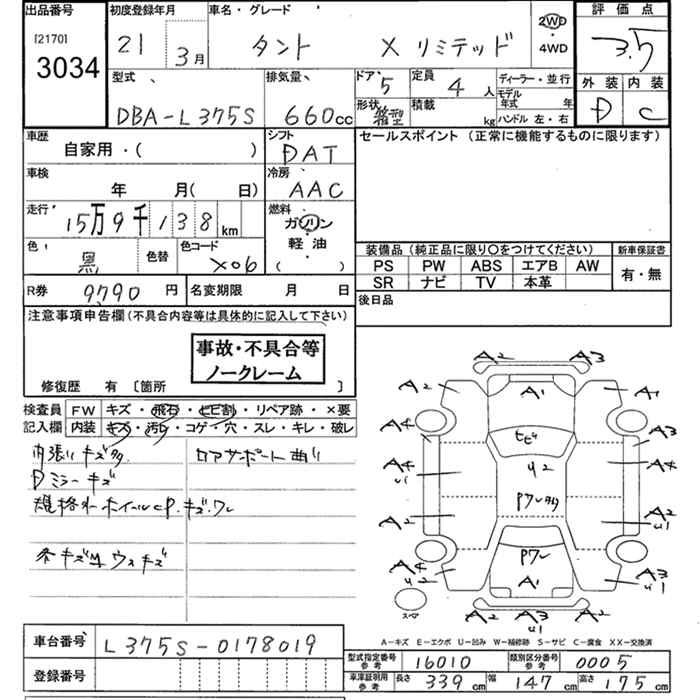 出品番号
[2170]
3034
初度登録年月
21 3月
車名・グレード
タント X リミテッド
2WD
・
4WD
評価点
3.5
外装 内装
D C
型式
DBA-L375S
排気量
660cc
ドア
5
定員
4人
形状
箱型
積載
kg
ディーラー・並行
モデル年式 年
ハンドル 左・右
車歴
自家用・( )
シフト
DAT
セールスポイント (正常に機能するものに限ります)
車検
年 月( 日)
冷房
AAC
走行
15万9千138km
燃料
ガソリン
軽油
( )
色
黒
色替
色コード
X06
装備品 (純正品に限り○をつけてください)
新車保証書
PS PW ABS エアB AW
SR ナビ TV 本革
有・無
R券
9790円
名変期限 月 日
後日品
注意事項申告欄(不具合内容等は具体的に記入して下さい)
事故・不具合等
ノークレーム
修復歴 有 〔箇所 〕
検査員
記入欄
FW キズ・飛石・ヒビ割・リペア跡・×要
内装 キズ・汚レ・コゲ・穴・スレ・キレ・破レ
内張りキズ多
Dミラーキズ
規格外ホイールcP.キズ.ワレ
ロアサポート曲り
A2 A3
A2 A1 A1
A4 A3
ヒビ
A4 U1 U2 A4
Pワレ
A2 A2 U1
Pワレ
A4 U2 A1 A3 U1
スペア
A2 A3 A2
U1
A-キズ E-エクボ U-凹み W-補修跡 S-サビ C-腐食 XX-交換済
車台番号
L375S-0178019
登録番号
型式指定番号
参考
16010
類別区分番号
参考
0005
車庫証明用
参考
長さ 339cm 幅 147cm 高さ 175cm